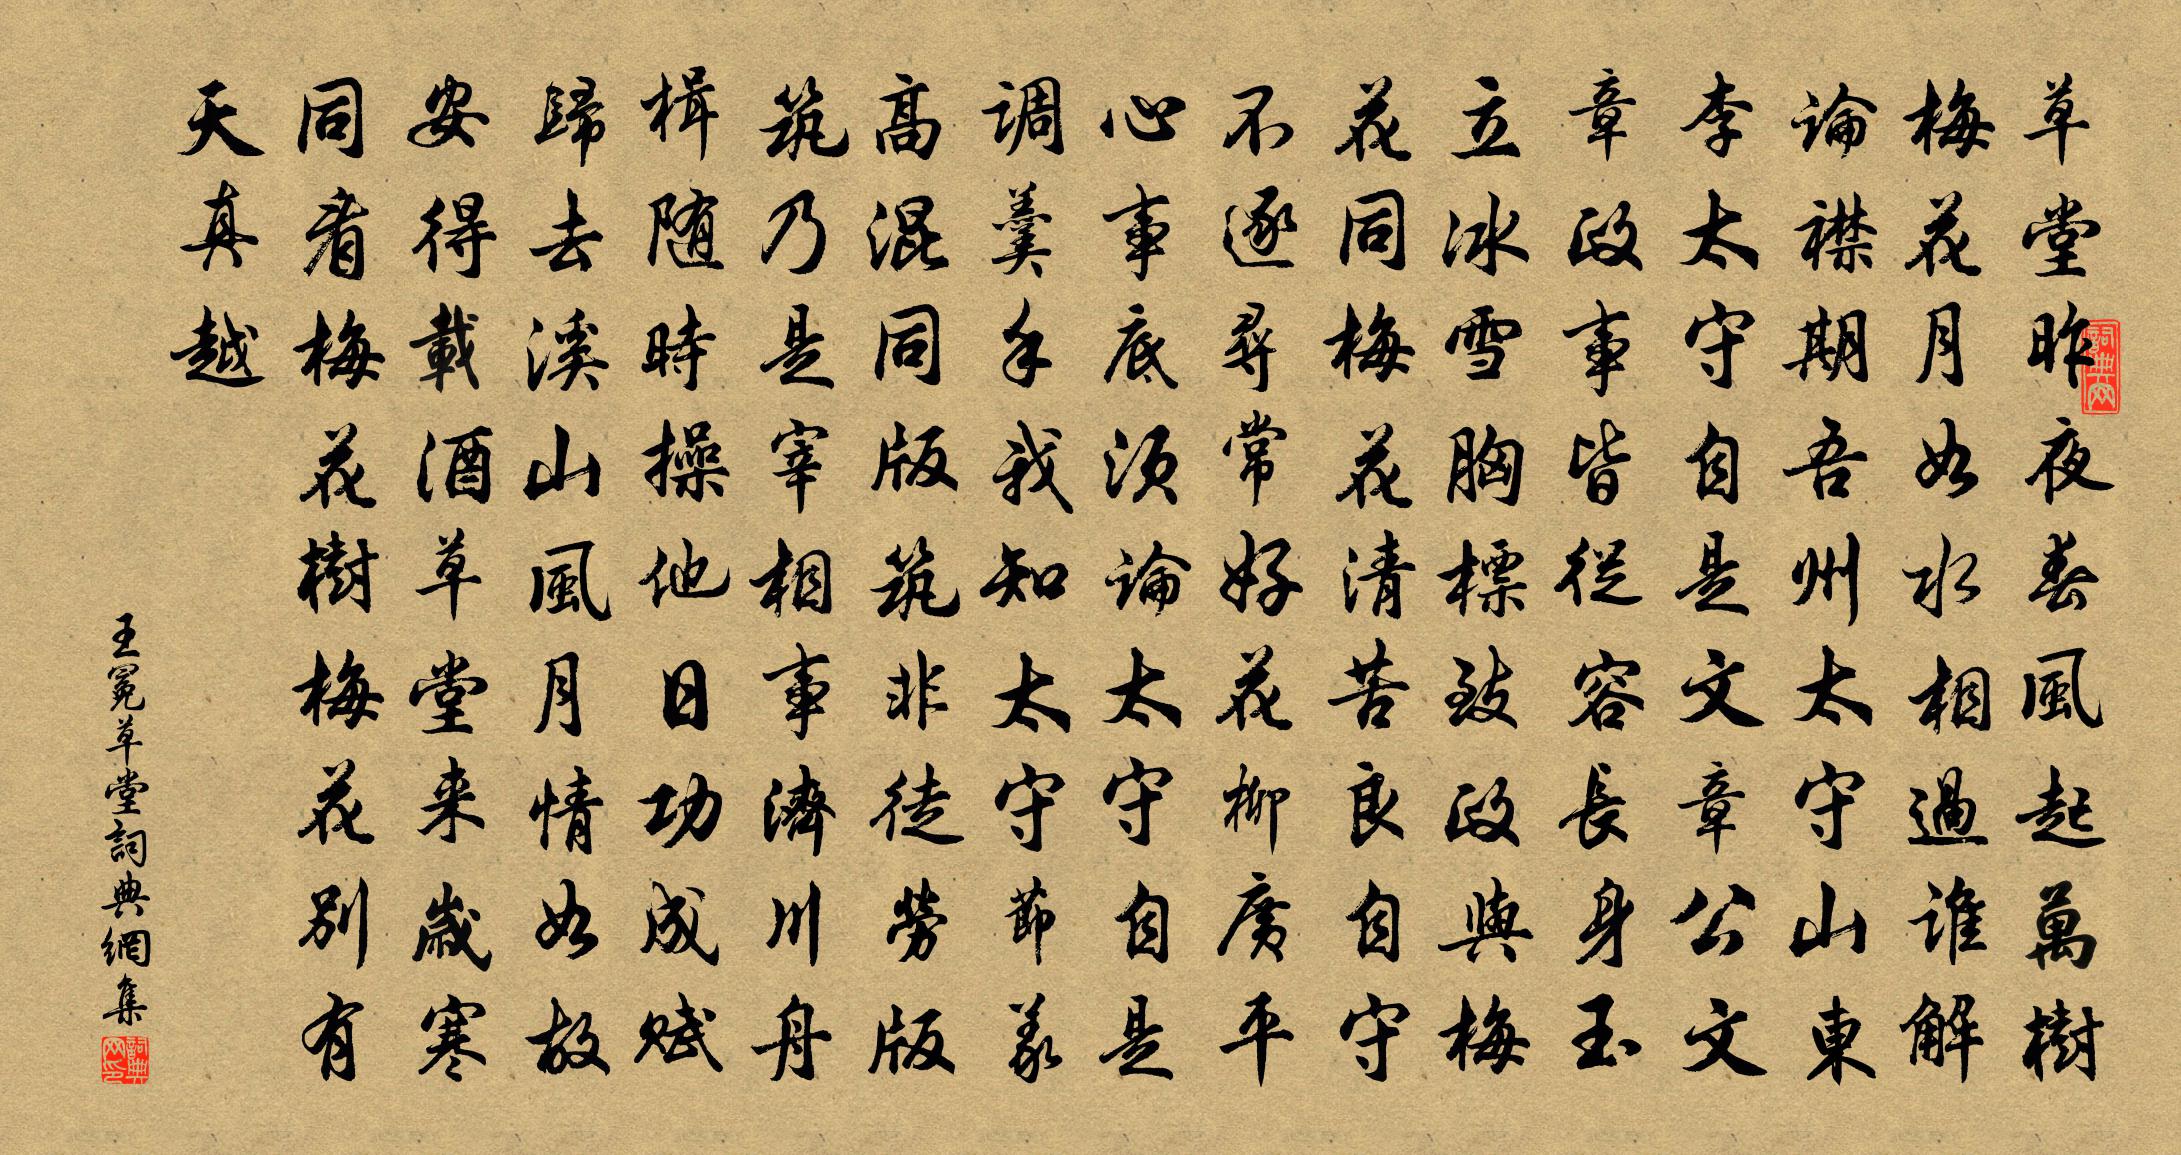 草堂昨夜春風起萬樹
梅花月如水相過誰解
論襟期吾州太守山東
李太守自是文章公文
章政事皆從容長身玉
立冰雪胸標致政與梅
花同梅花清苦良自守
不逐尋常好花柳廣平
心事底須論太守自是
調羹手我知太守節義
高混同版筑非徒勞版
筑乃是宰相事濟川舟
楫随時操他日功成賦
歸去溪山風月情如故
安得載酒草堂来歲寒
同看梅花樹梅花別有
天真越
王冕草堂詞典網集
詞典网
詞典网印